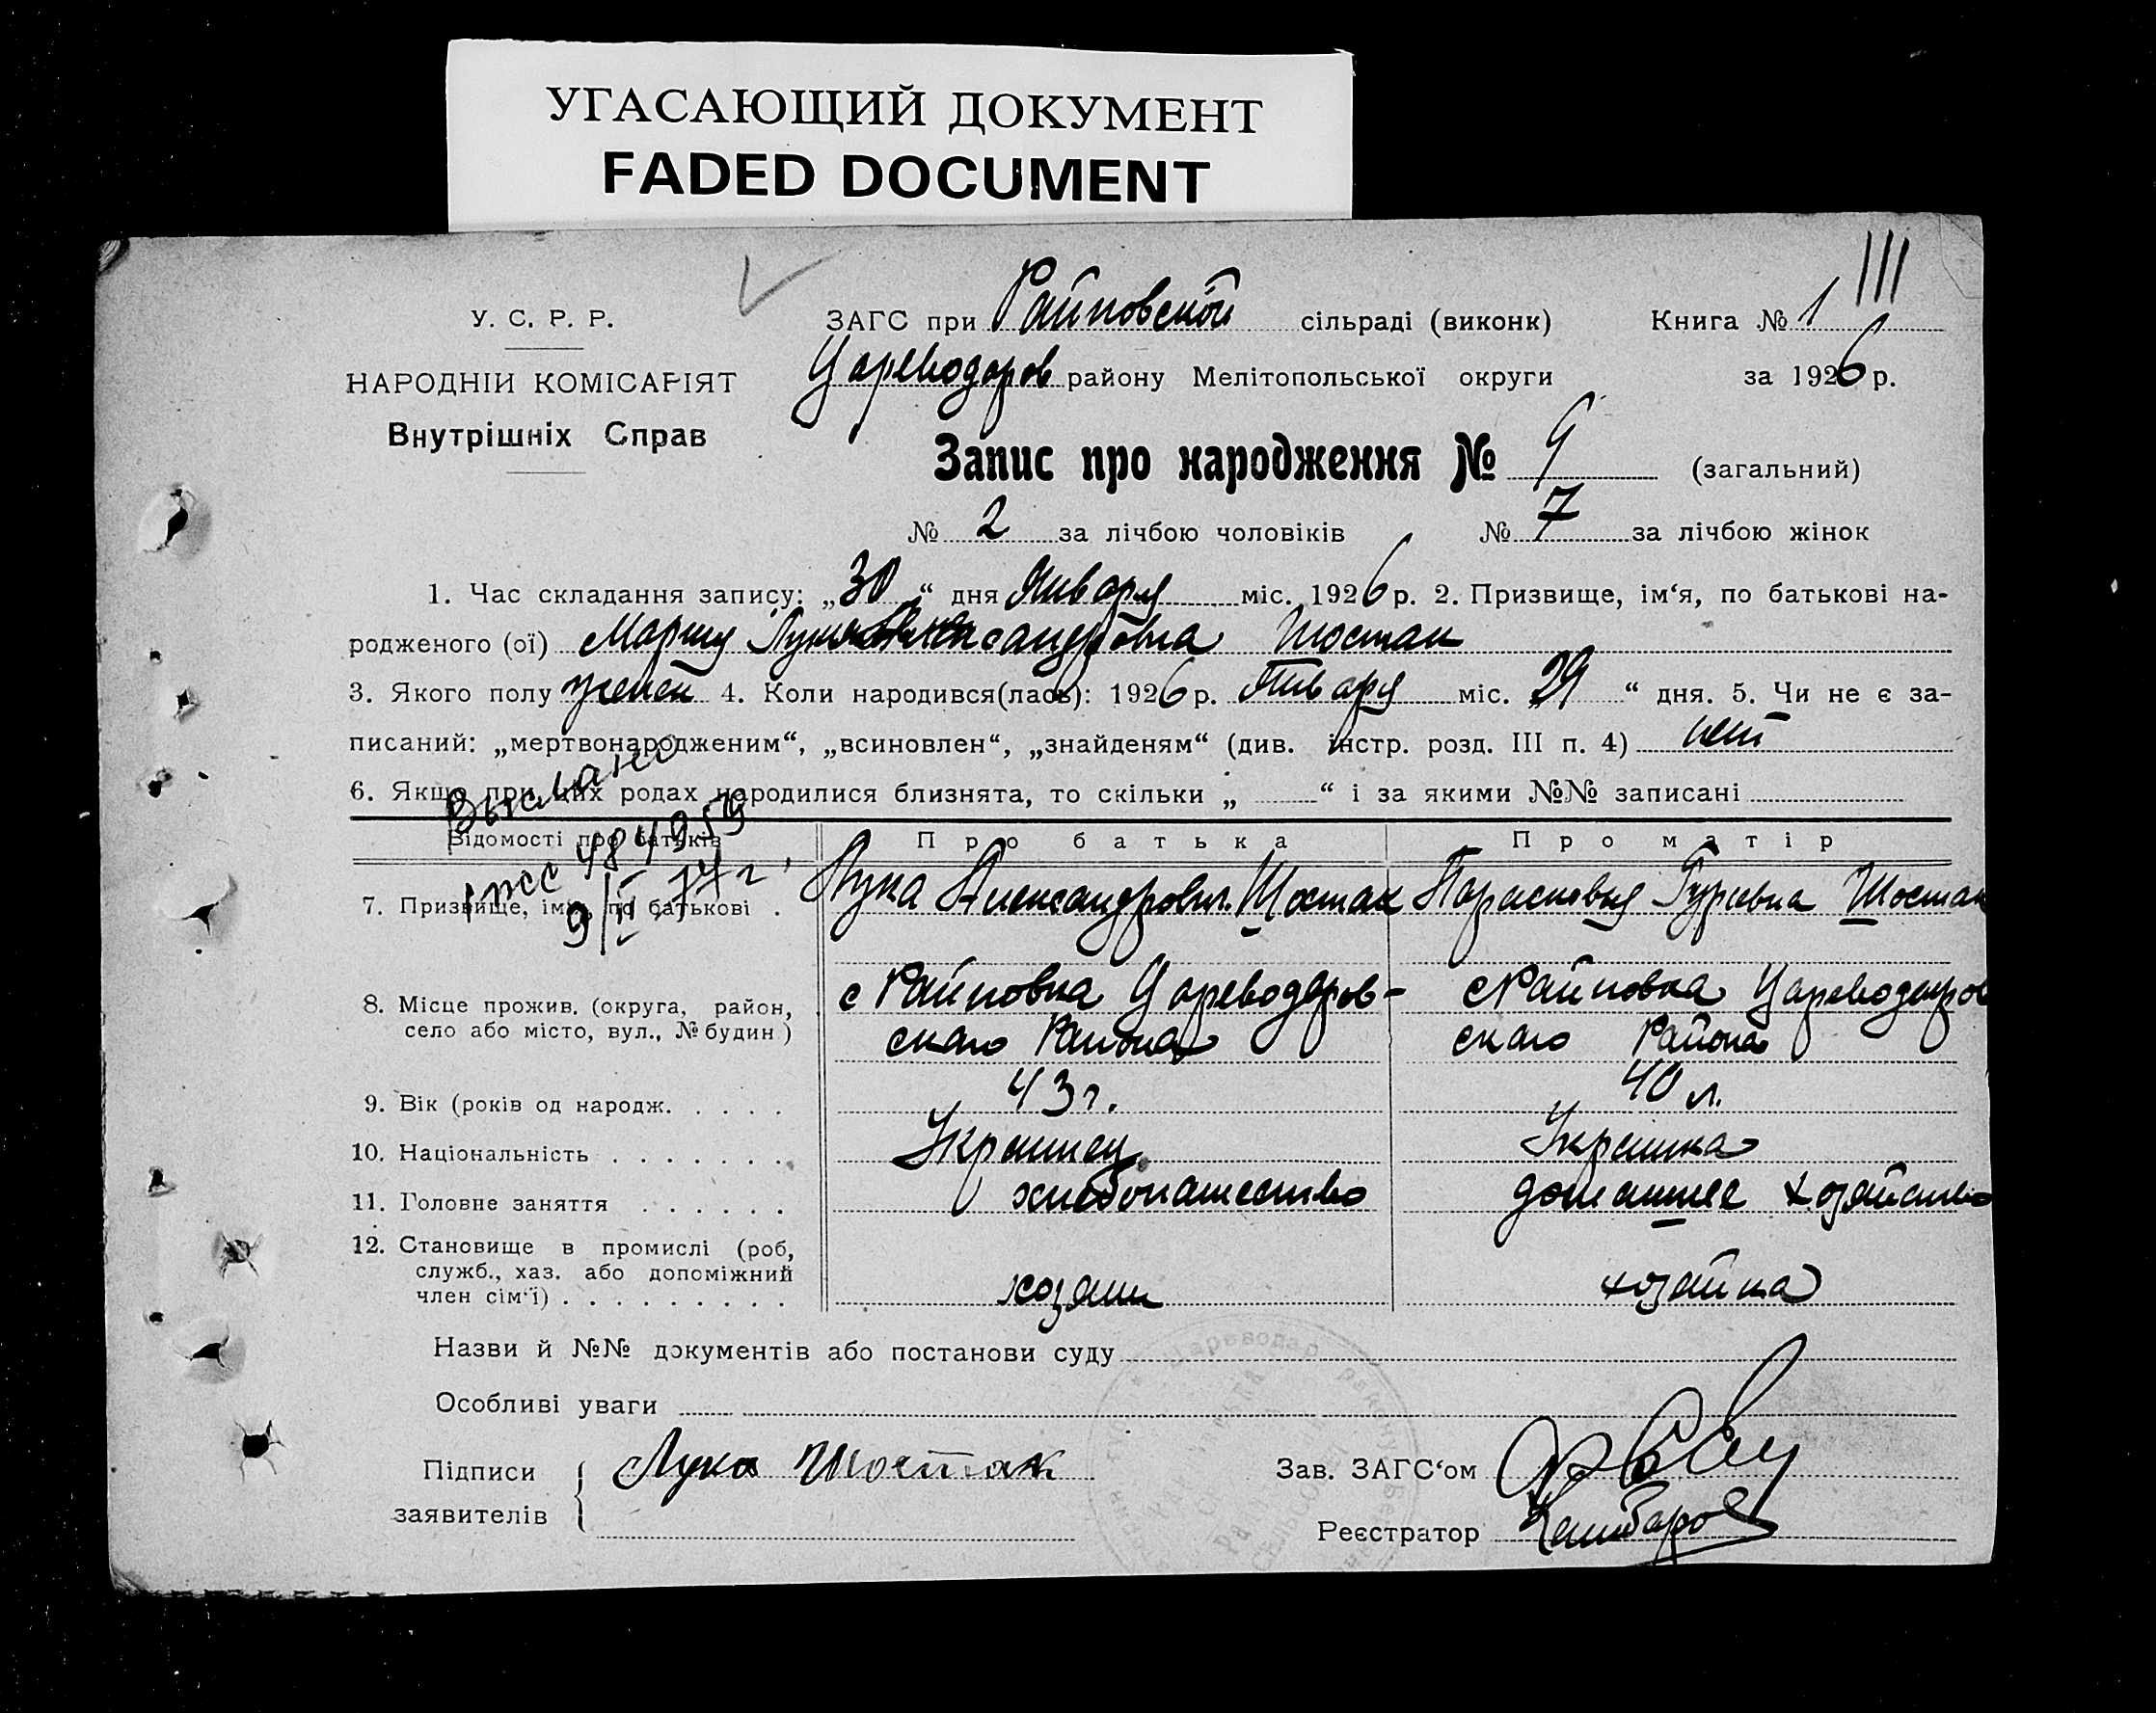 УГАСАЮЩИЙ ДОКУМЕНТ
FADED DOCUMENT
III
У. С. Р. Р.
ЗАГС при Райновской сільраді (виконк)
Книга № 1
НАРОДНІЙ КОМІСАРІЯТ
Цареводаров району Мелітопольської округи
за 1926 р.
Внутрішніх Справ
Запис про народження № 9 (загальний)
№ 2 за лічбою чоловіків № 7 за лічбою жінок
1. Час складання запису: „30“ дня Января міс. 1926 р. 2. Призвище, ім‘я, по батькові на-
родженого (ої) Мария Шостак
3. Якого полу женск 4. Коли народився(лась): 1926 р. Января міс. „29“ дня. 5. Чи не є за-
писаний: „мертвонародженим“, „всиновлен“, „знайденям“ (див. інстр. розд. III п. 4) нет
6. Якщо при цих родах народилися близнята, то скільки „ “ і за якими №№ записані
Выслано
484959
9/II 77 г.
Відомості про батьків
Про батька
Про матір
7. Призвище, ім‘я, по батькові .
Лука Александрович Шостак
Парасковия Гуриевна Шостак
8. Місце прожив. (округа, район,
село або місто, вул., № будин )
с Райновка Цареводаров-
скаго Района
с Райновка Цареводаров
скаго Района
9. Вік (років од народж. . . . .
43 г.
40 л.
10. Національність . . . . . . .
Украинец
Украинка
11. Головне заняття . . . . . .
хлебопашество
домашнее хозяйство
12. Становище в промислі (роб,
служб., хаз. або допоміжний
член сім‘ї) . . . . . . . . .
хозяин
хозяйка
Назви й №№ документів або постанови суду
Особливі уваги
Підписи
заявителів
Лука Шостак
Зав. ЗАГС‘ом
Реєстратор